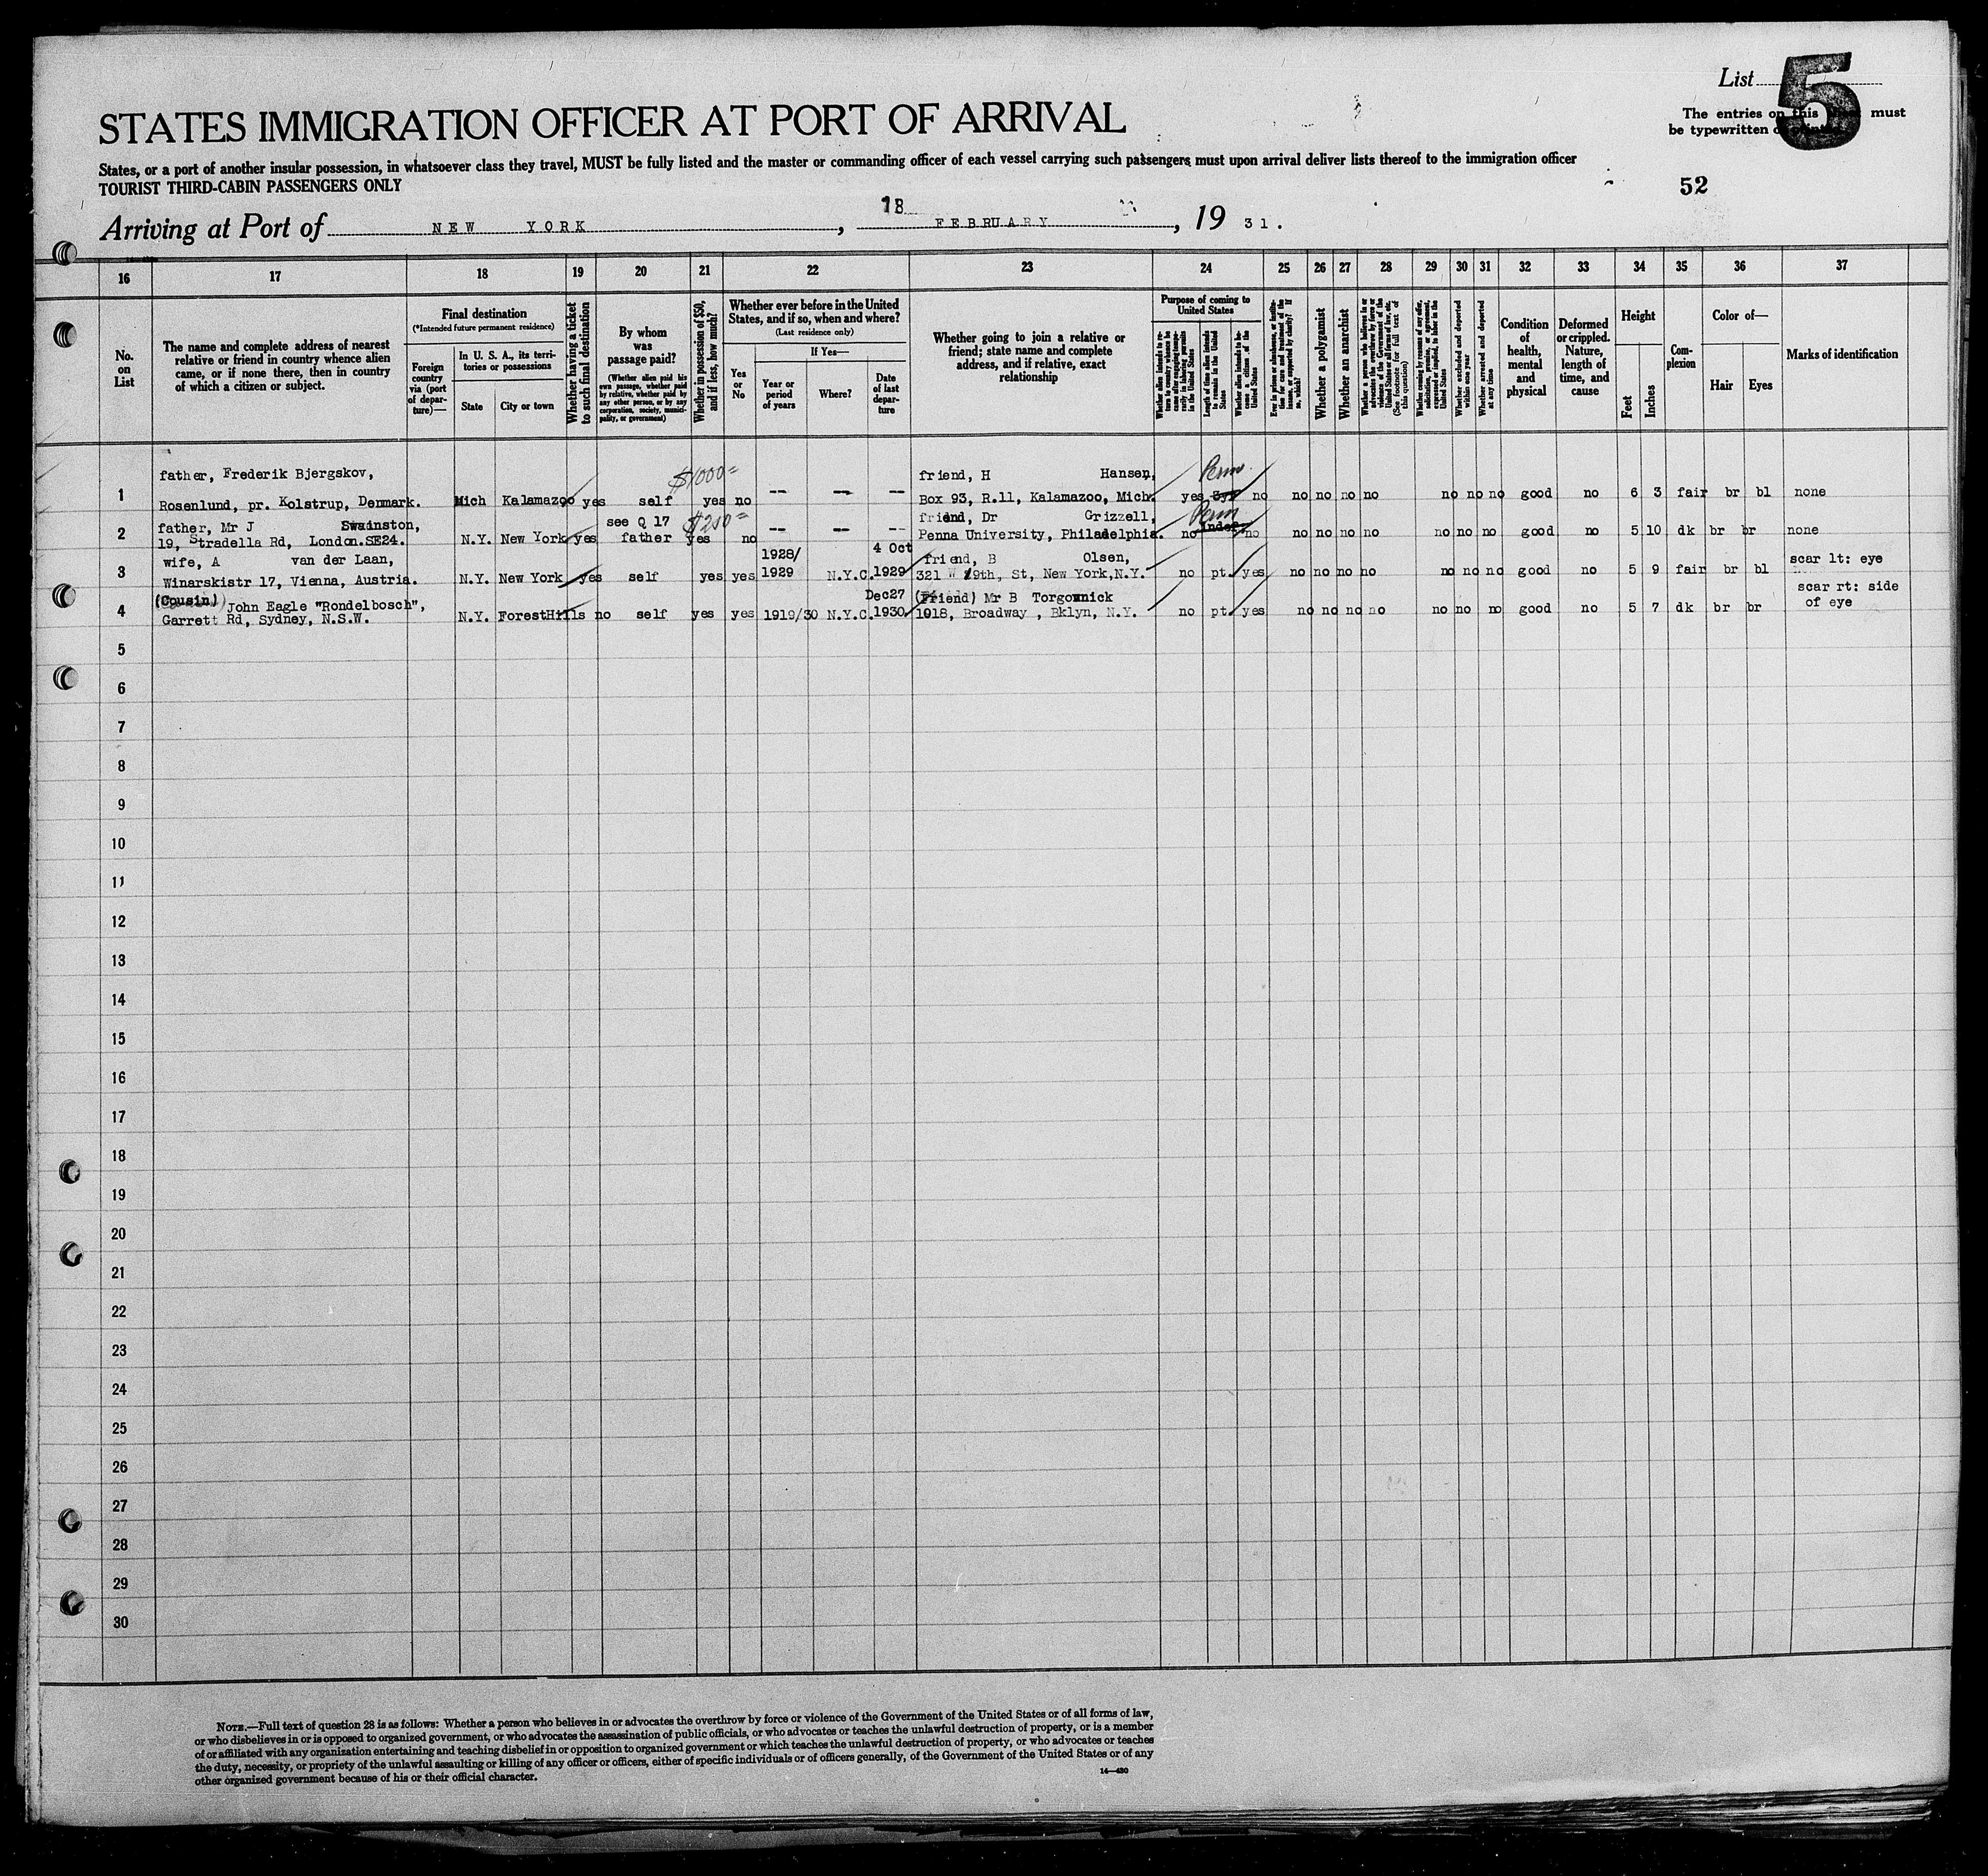 List 5
STATES IMMIGRATION OFFICER AT PORT OF ARRIVAL
The entries on this must
be typewritten
States, or a port of another insular possession, in whatsoever class they travel, MUST be fully listed and the master or commanding officer of each vessel carrying such passengers must upon arrival deliver lists thereof to the immigration officer
TOURIST THIRD-CABIN PASSENGERS ONLY
52
Arriving at Port of NEW YORK, 18 FEBRUARY, 19 31.
16 17 18 19 20 21 22 23 24 25 26 27 28 29 30 31 32 33 34 35 36 37
No. on List
The name and complete address of nearest
relative or friend in country whence alien
came, or if none there, then in country
of which a citizen or subject.
Final destination
(*Intended future permanent residence)
Foreign country via (port of departure)—
In U. S. A., its territories or possessions
State
City or town
Whether having a ticket to such final destination
By whom was passage paid?
(Whether alien paid his own passage, whether paid by relative, whether paid by any other person, or by any corporation, society, municipality, or government)
Whether in possession of $50, and if less, how much?
Whether ever before in the United States, and if so, when and where?
(Last residence only)
Yes or No
If Yes—
Year or period of years
Where?
Date of last departure
Whether going to join a relative or
friend; state name and complete
address, and if relative, exact
relationship
Purpose of coming to United States
Length of time alien intends to remain in the United States
Whether alien intends to become a citizen of the United States
Whether a polygamist
Whether an anarchist
Whether excluded and deported within one year
Whether arrested and deported at any time
Condition of health, mental and physical
Deformed or crippled. Nature, length of time, and cause
Height
Feet
Inches
Complexion
Color of—
Hair
Eyes
Marks of identification
father, Frederik Bjergskov, $1000= friend, H Hansen, Perm
1 Rosenlund, pr. Kolstrup, Denmark. Mich Kalamazoo yes self yes no -- -- -- Box 93, R.11, Kalamazoo, Mich. yes no no no no no no no no good no 6 3 fair br bl none
father, Mr J Swainston, see Q 17 $250= friend, Dr Grizzell, Perm
2 19, Stradella Rd, London.SE24. N.Y. New York yes father yes no -- -- -- Penna University, Philadelphia. no indef no no no no no no no no good no 5 10 dk br br none
wife, A van der Laan, 1928/ 4 Oct friend, B Olsen, scar lt: eye
3 Winarskistr 17, Vienna, Austria. N.Y. New York yes self yes yes 1929 N.Y.C. 1929 321 W 19th, St, New York,N.Y. no pt. yes no no no no no no no good no 5 9 fair br bl
(Cousin) John Eagle "Rondelbosch", Dec27 (Friend) Mr B Torgownick scar rt: side
4 Garrett Rd, Sydney, N.S.W. N.Y. ForestHills no self yes yes 1919/30 N.Y.C. 1930 1018, Broadway , Bklyn, N.Y. no pt. yes no no no no no no no good no 5 7 dk br br of eye
5
6
7
8
9
10
11
12
13
14
15
16
17
18
19
20
21
22
23
24
25
26
27
28
29
30
NOTE.—Full text of question 28 is as follows: Whether a person who believes in or advocates the overthrow by force or violence of the Government of the United States or of all forms of law,
or who disbelieves in or is opposed to organized government, or who advocates the assassination of public officials, or who advocates or teaches the unlawful destruction of property, or is a member
of or affiliated with any organization entertaining and teaching disbelief in or opposition to organized government or which teaches the unlawful destruction of property, or who advocates or teaches
the duty, necessity, or propriety of the unlawful assaulting or killing of any officer or officers, either of specific individuals or of officers generally, of the Government of the United States or of any
other organized government because of his or their official character.
14—430